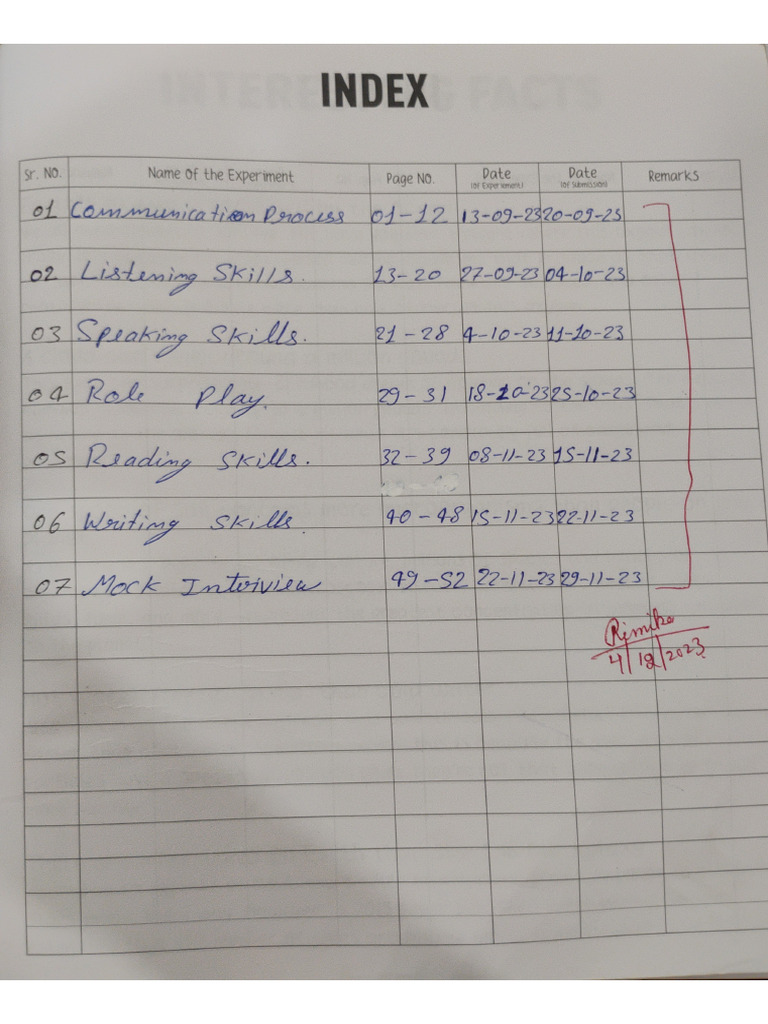 INDEX
Sr. NO. Name Of the Experiment Page NO. Date (Of Experiement) Date (Of Submission) Remarks
01 Communication Process 01-12 13-09-23 20-09-23
02 Listening Skills. 13-20 27-09-23 04-10-23
03 Speaking Skills. 21-28 4-10-23 11-10-23
04 Role Play. 29-31 18-10-23 25-10-23
05 Reading Skills. 32-39 08-11-23 15-11-23
06 Writing Skills. 40-48 15-11-23 22-11-23
07 Mock Interview 49-52 22-11-23 29-11-23
4/12/2023